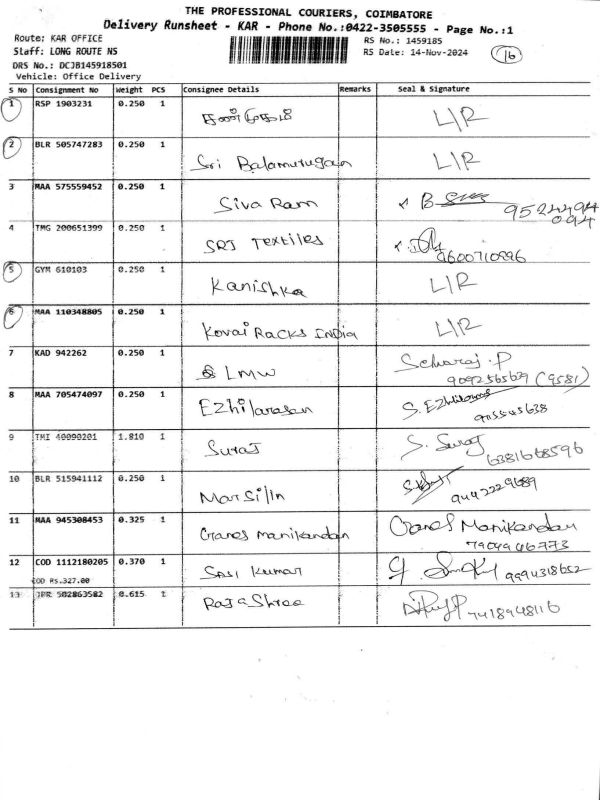 THE PROFESSIONAL COURIERS, COIMBATORE
Delivery Runsheet - KAR - Phone No.:0422-3505555 - Page No.:1
Route: KAR OFFICE
RS No.: 1459185
Staff: LONG ROUTE NS
RS Date: 14-Nov-2024
16
DRS No.: DCJB145918501
Vehicle: Office Delivery
S No Consignment No Weight PCS Consignee Details Remarks Seal & Signature
1 RSP 1903231 0.250 1 L/R
2 BLR 505747283 0.250 1 Sri Balamurugan L/R
3 MAA 575559452 0.250 1 Siva Ram
4 TMG 200651399 0.250 1 SRJ Textiles 9600710896
5 GYM 610103 0.250 1 Kanishka L/R
6 MAA 110348805 0.250 1 Kovai Racks India L/R
7 KAD 942262 0.250 1 LMW
9092565679 (9581)
8 MAA 705474097 0.250 1 Ezhilarasan
9 TMI 40090201 1.810 1 Suraj S. Suraj
6381668596
10 BLR 515941112 0.250 1 Marsilin
9442229689
11 MAA 945308453 0.325 1 Ganes manikandan Ganes Manikandan
7904946773
12 COD 1112180205 0.370 1 Sasi Kumar 9994318652
COD Rs.327.00
13 502863582 0.615 1 Rajashree 7418948116